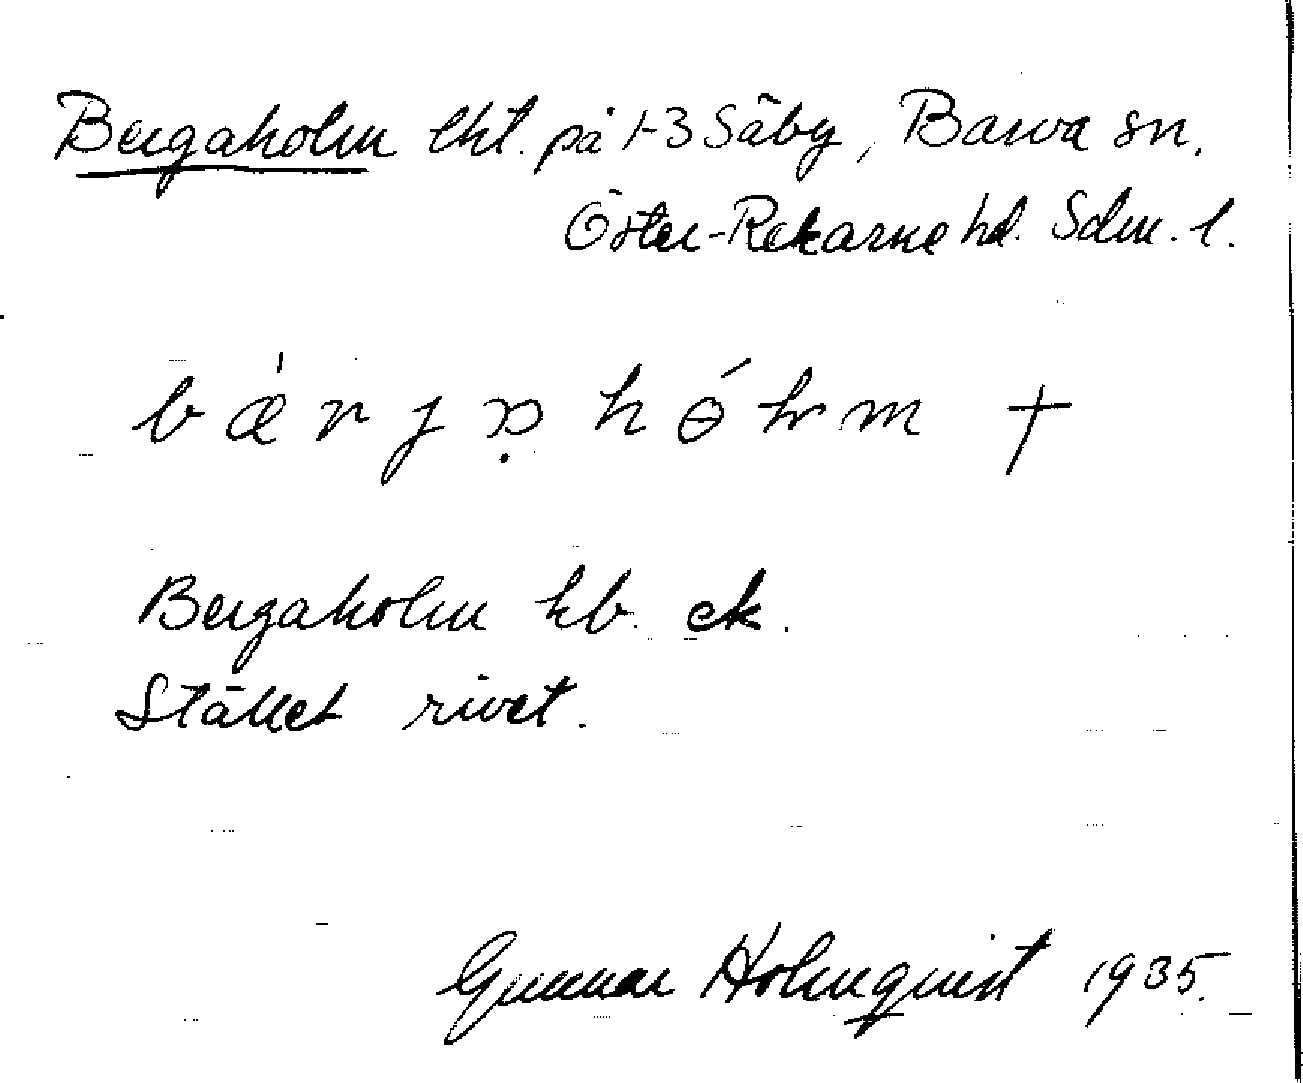 Bergaholm lht. på 1-3 Säby, Barva sn.
Öster-Rekarne hd. Sdm. l.
Bergaholm kb. ek.
Stället rivet.
Gunnar Holmquist 1935.